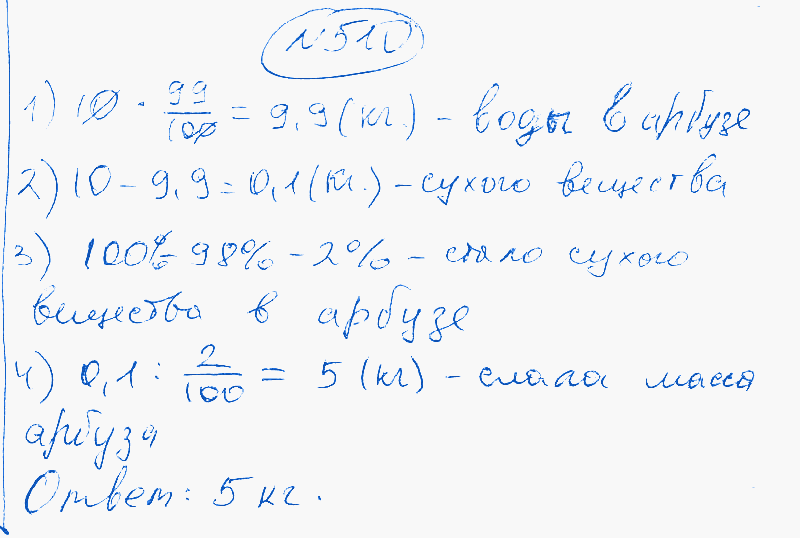 №510
1) 10 · 99/100 = 9,9 (кг.) - воды в арбузе
2) 10 - 9,9 = 0,1 (кг.) - сухого вещества
3) 100% - 98% - 2% - стало сухого
вещества в арбузе
4) 0,1 : 2/100 = 5 (кг) - стала масса
арбуза
Ответ: 5 кг.